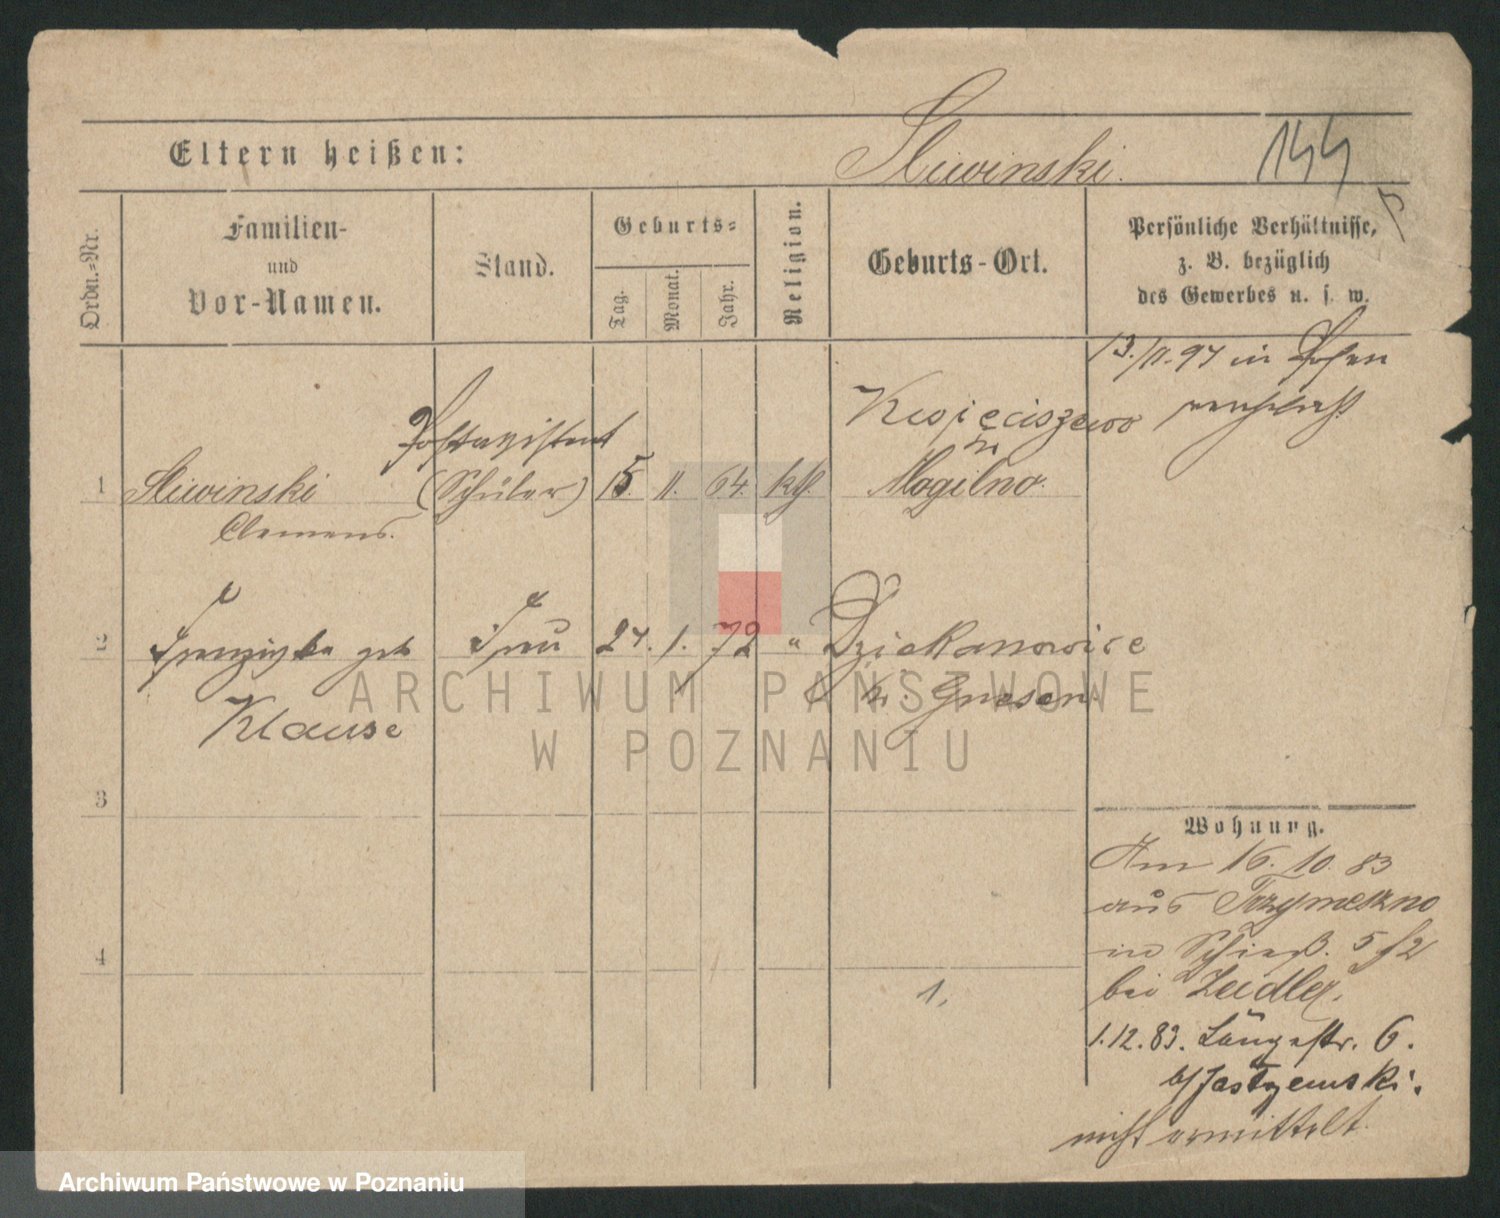 Sliwinski.
144
Eltern heißen:
Ordn.=Nr.
Familien-
und
Vor-Namen.
Stand.
Geburts=
Tag.
Monat.
Jahr.
Religion.
Geburts-Ort.
Persönliche Verhältnisse,
z. B. bezüglich
des Gewerbes u. s. w.
13./11.97 in Posen
Kwieciszewo
Postassistent
1 Sliwinski (Schüler) 15. 11. 64. kth. Mogilno.
Clemens.
2 Franziska geb Frau 27. 1. 72 " Dziekanowice
Klause
Kr. Gnesen
3
Wohnung.
Am 16. 10. 83
aus Trzymeszno
in Schieß. 5 f 2
bei Zeidler.
4
1.
1.12.83. Langestr. 6.
b/ Jastzemski.
nicht ermittelt.
ARCHIWUM PAŃSTWOWE
W POZNANIU
Archiwum Państwowe w Poznaniu